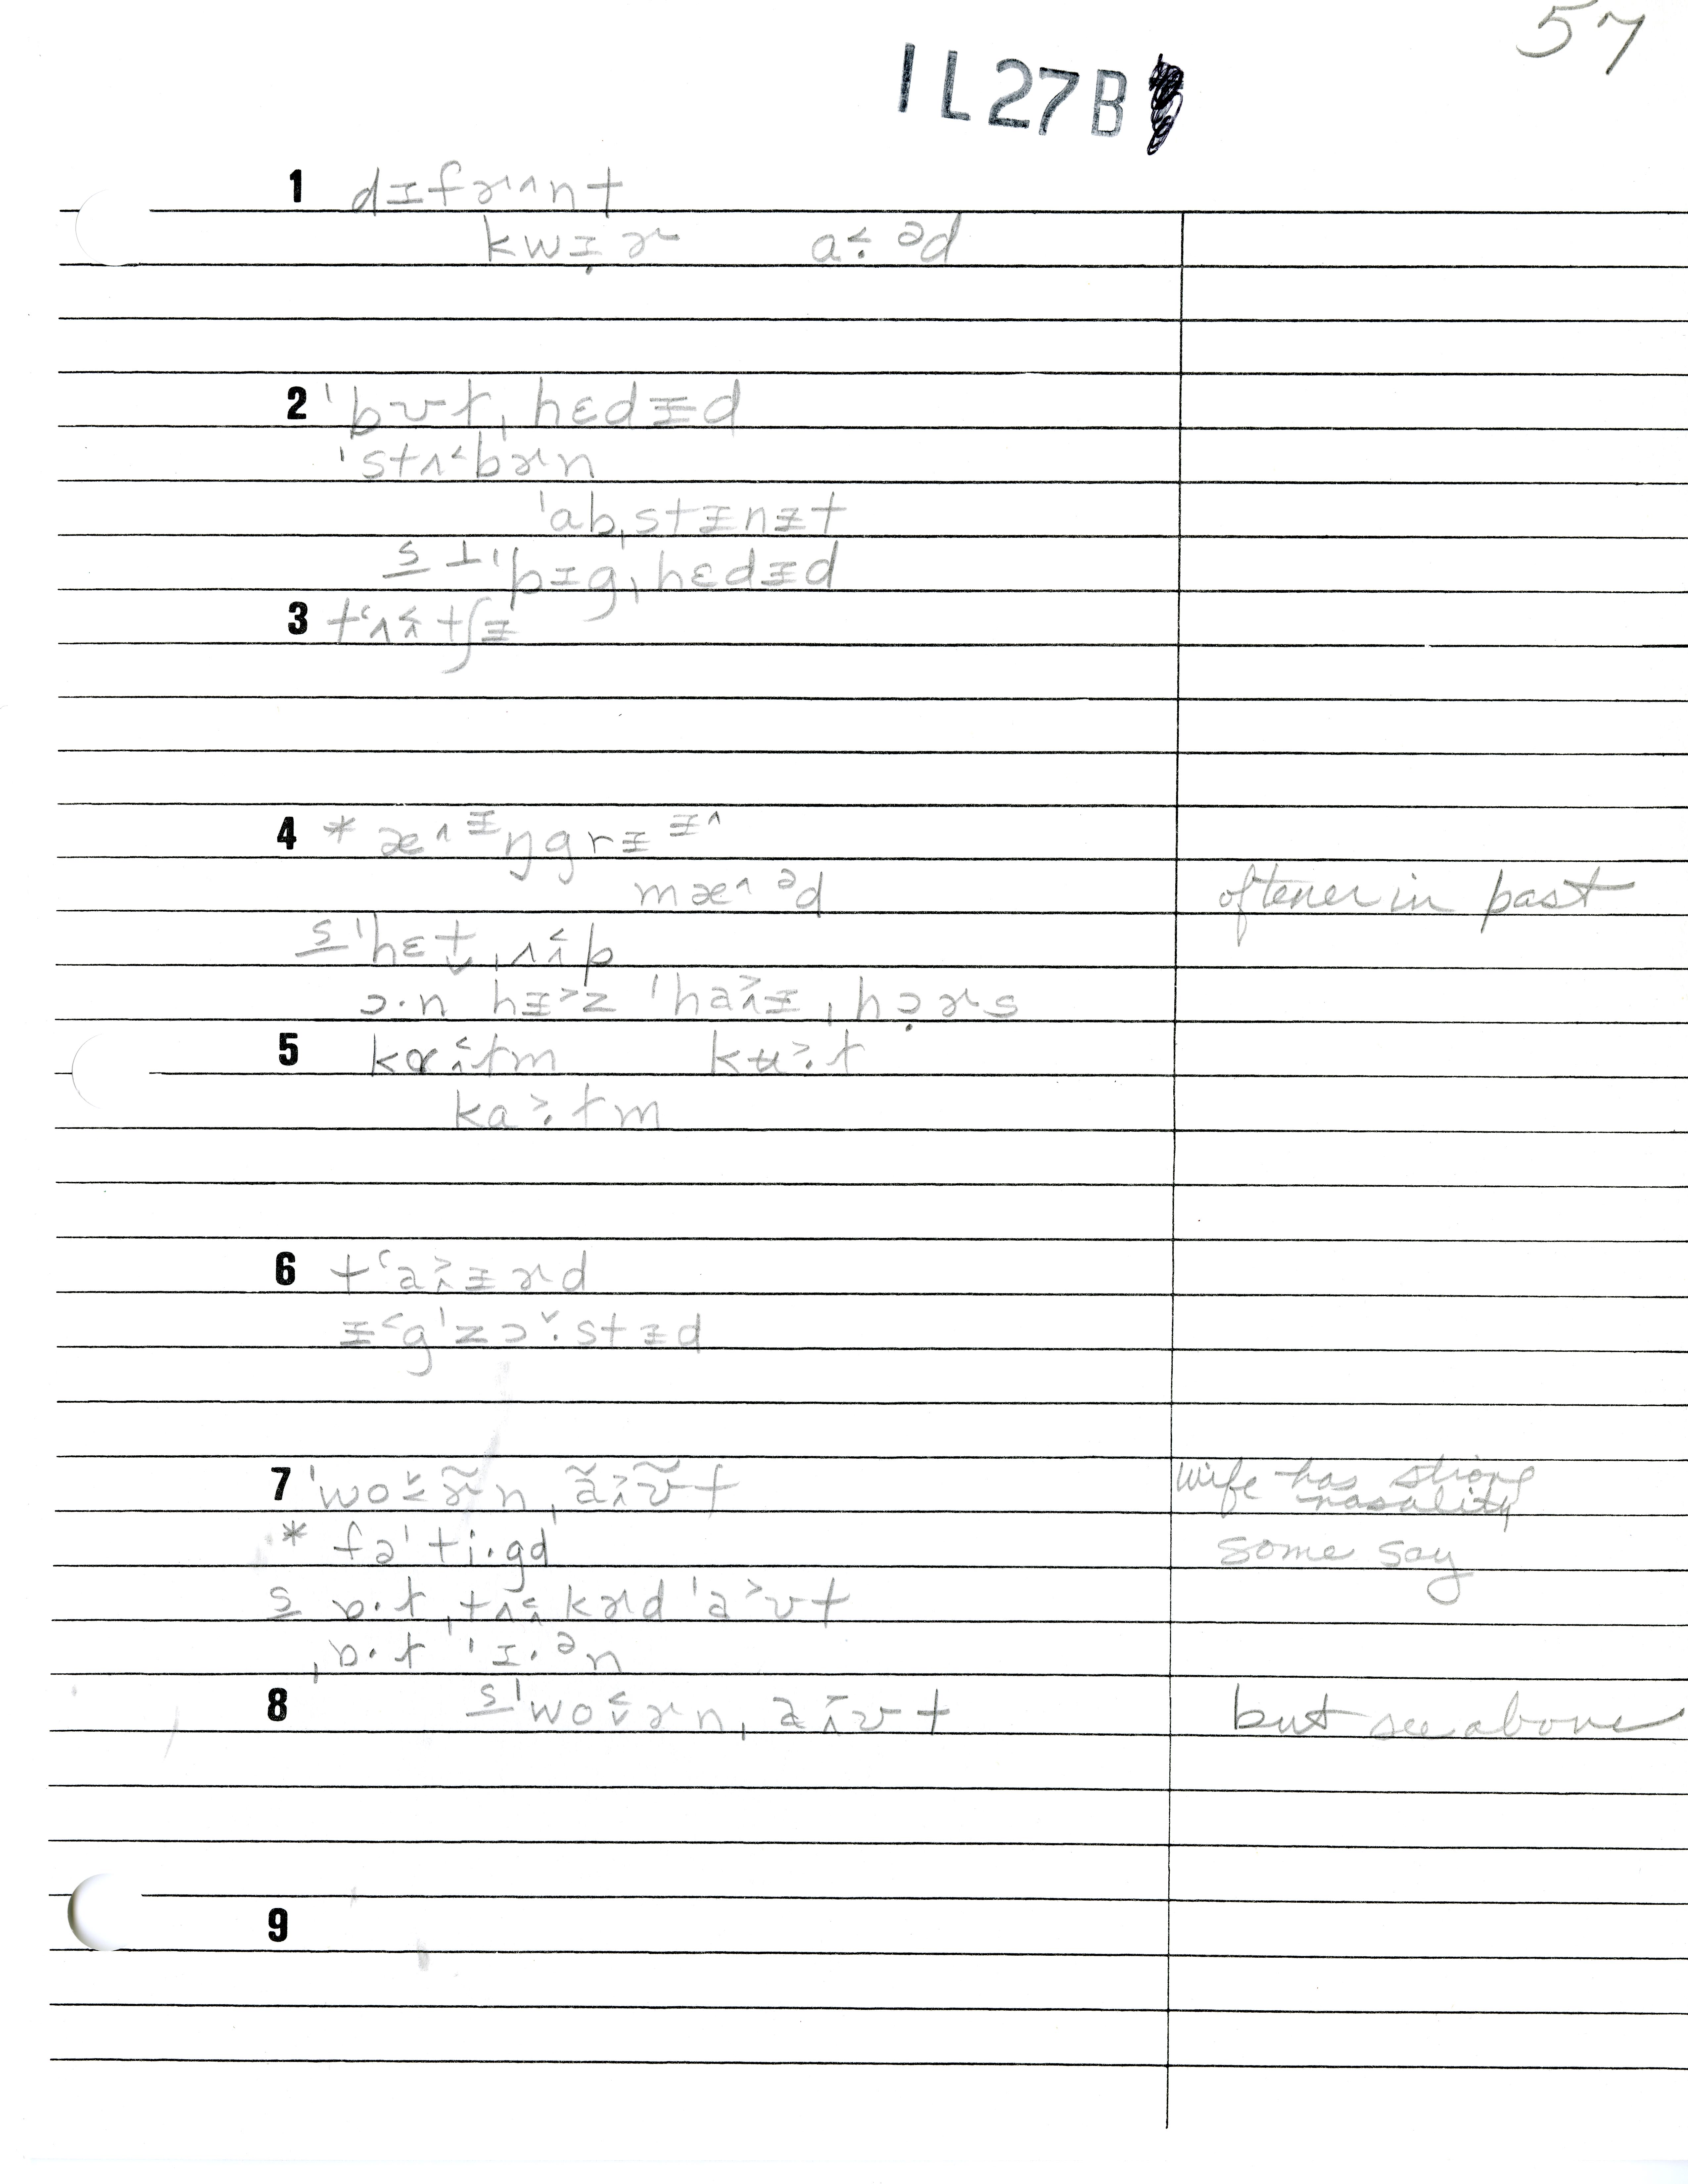 57
IL27B
1 dɪfɚ^nt
kwɪ̣ɚ a˂· ᵊd
2 ˈbʊtˌhɛdɪ̵d
ˈstʌ˂bɚn
ˈabˌstɪ̵nɪ̵t
s ⊥ ˈpɪgˌhɛdɪ̵d
3 t‘ʌ˂̭tʃɪ̵
4 * æ^ ᶤŋgrɪ̵ ᶤ^
mæ^ ᵊd oftener in past
s ˈhɛt̬ˌʌ˂̭p
ɔ·n hɪ̵˃z ˈha˃̭ɪ̵ˌhɔ̣ɚs
5 kɑ˂̭·tm kʉ˃·t
ka˃·tm
6 t‘a˃̭ɪ̵ɚd
ɪ̵˂gˈzɔˇ·stɪ̵d
7 ˈwo˂̬ɚ̃nˌã˃̭ʊ̃t wife has strong nasality
* fəˈti·gd some say
s ɒ·t ˌtʌ˂̭kɚd ˈa˃ʊt
ˌɒ·t ˈɪ·ᵊn
8 s ˈwo˂̬ɚnˌa˃̭ʊt but see above
9